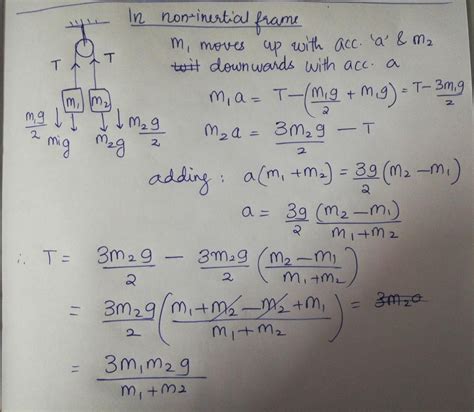 In non-inertial frame
m₁ moves up with acc. 'a' & m₂
downwards with acc. a
T T
m₁ m₂
m₁g/2 m₁g m₂g m₂g/2
m₁a = T - (m₁g/2 + m₁g) = T - 3m₁g/2
m₂a = 3m₂g/2 - T
adding : a(m₁+m₂) = 3g/2 (m₂ - m₁)
a = 3g/2 (m₂ - m₁)/(m₁ + m₂)
∴ T = 3m₂g/2 - 3m₂g/2 (m₂ - m₁/m₁ + m₂)
= 3m₂g/2 (m₁ + m₂ - m₂ + m₁/m₁ + m₂) =
= 3m₁m₂g/m₁ + m₂